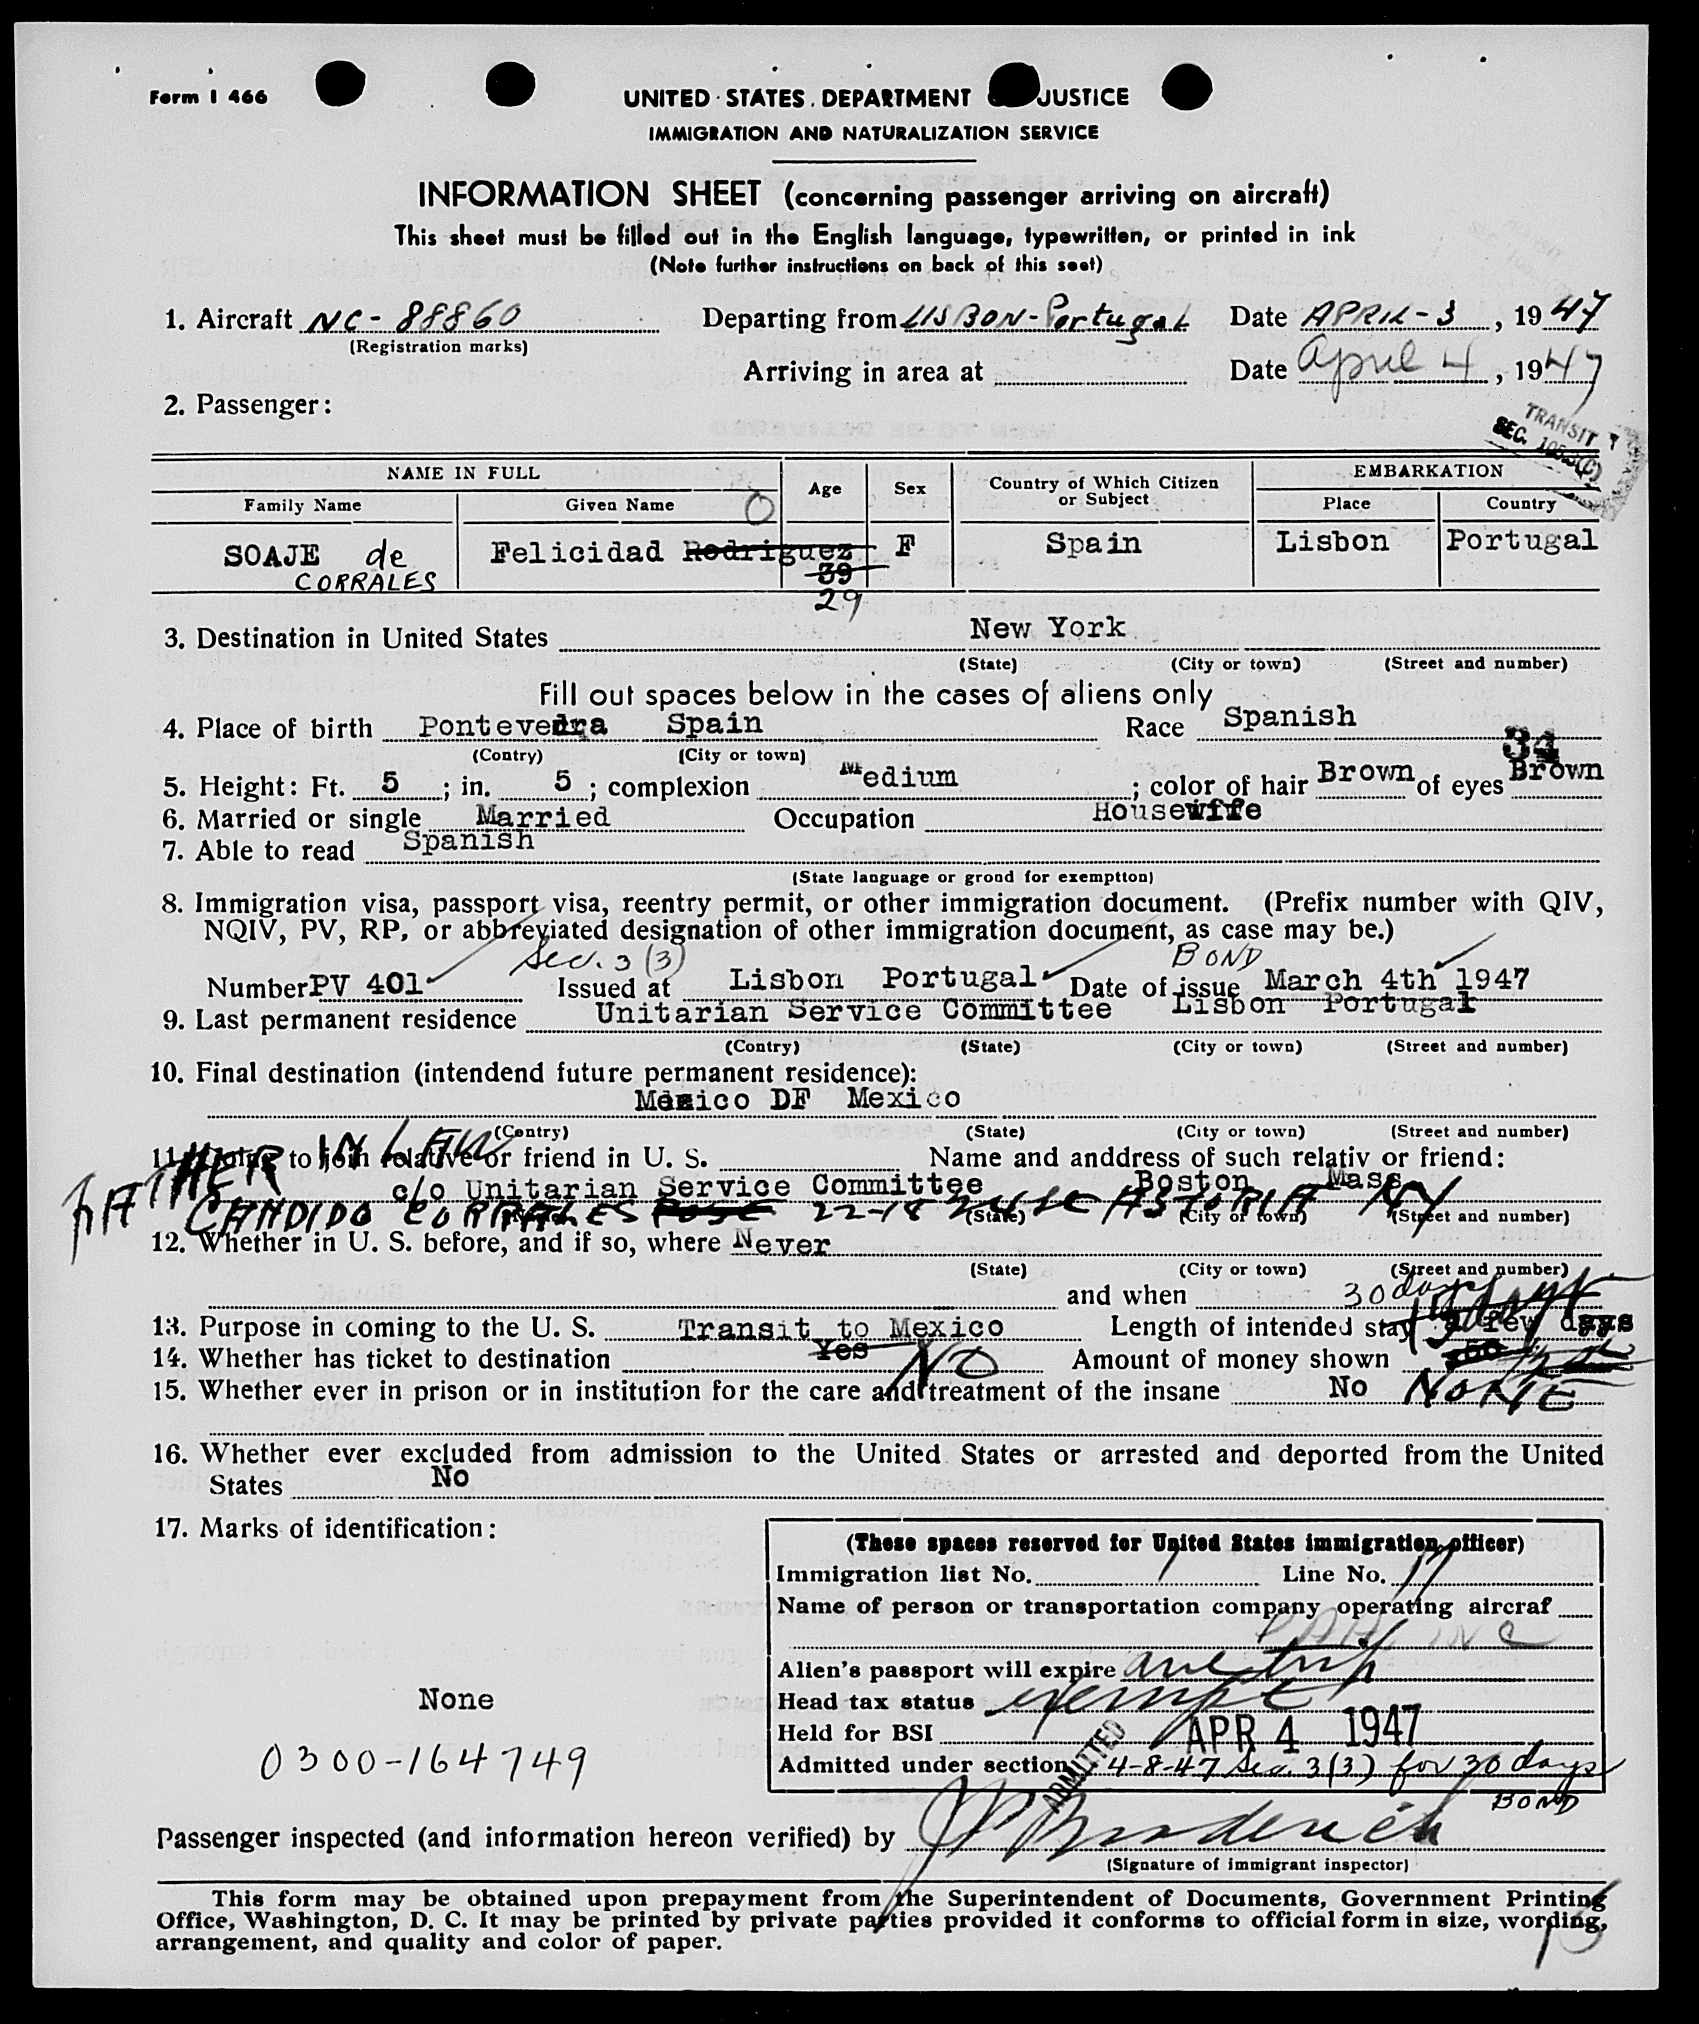 Form I 466
UNITED STATES DEPARTMENT JUSTICE
IMMIGRATION AND NATURALIZATION SERVICE
INFORMATION SHEET (concerning passenger arriving on aircraft)
This sheet must be filled out in the English language, typewritten, or printed in ink
(Note further instructions on back of this seet)
1. Aircraft NC-88860 Departing from LISBON-Portugal Date APRIL-3, 1947
(Registration marks)
Arriving in area at Date April 4, 1947
2. Passenger:
TRANSIT
SEC.
NAME IN FULL Age Sex Country of Which Citizen or Subject EMBARKATION
Family Name Given Name Place Country
SOAJE de CORRALES Felicidad Rodriguez 39 F Spain Lisbon Portugal
29
3. Destination in United States New York
(State) (City or town) (Street and number)
Fill out spaces below in the cases of aliens only
4. Place of birth Pontevedra Spain Race Spanish
(Contry) (City or town)
34
5. Height: Ft. 5; in. 5; complexion Medium; color of hair Brown of eyes Brown
6. Married or single Married Occupation Housewife
7. Able to read Spanish
(State language or grond for exemptton)
8. Immigration visa, passport visa, reentry permit, or other immigration document. (Prefix number with QIV,
NQIV, PV, RP, or abbreviated designation of other immigration document, as case may be.)
Sec. 3 (3) BOND
Number PV 401 Issued at Lisbon Portugal Date of issue March 4th 1947
9. Last permanent residence Unitarian Service Committee Lisbon Portugal
(Contry) (State) (City or town) (Street and number)
10. Final destination (intendend future permanent residence):
Mexico DF Mexico
(Contry) (State) (City or town) (Street and number)
FATHER IN LAW
11. Going to join relative or friend in U. S. Name and anddress of such relativ or friend:
c/o Unitarian Service Committee Boston Mass
CANDIDO CORRALES 22-18 ASTORIA NY
(State) (City or town) (Street and number)
12. Whether in U. S. before, and if so, where Never
(State) (City or town) (Street and number)
and when
30 days
13. Purpose in coming to the U. S. Transit to Mexico Length of intended stay a few days
14. Whether has ticket to destination Yes NO Amount of money shown
15. Whether ever in prison or in institution for the care and treatment of the insane No NONE
16. Whether ever excluded from admission to the United States or arrested and deported from the United
States No
17. Marks of identification:
None
0300-164749
(These spaces reserved for United States immigration officer)
Immigration list No. 1 Line No. 17
Name of person or transportation company operating aircraf
PAA, INC
Alien's passport will expire one trip
Head tax status exempt
Held for BSI APR 4 1947
ADMITTED
Admitted under section 4-8-47 Sec. 3(3) for 30 days
BOND
Passenger inspected (and information hereon verified) by J Broderick
(Signature of immigrant inspector)
This form may be obtained upon prepayment from the Superintendent of Documents, Government Printing
Office, Washington, D. C. It may be printed by private parties provided it conforms to official form in size, wording,
arrangement, and quality and color of paper.